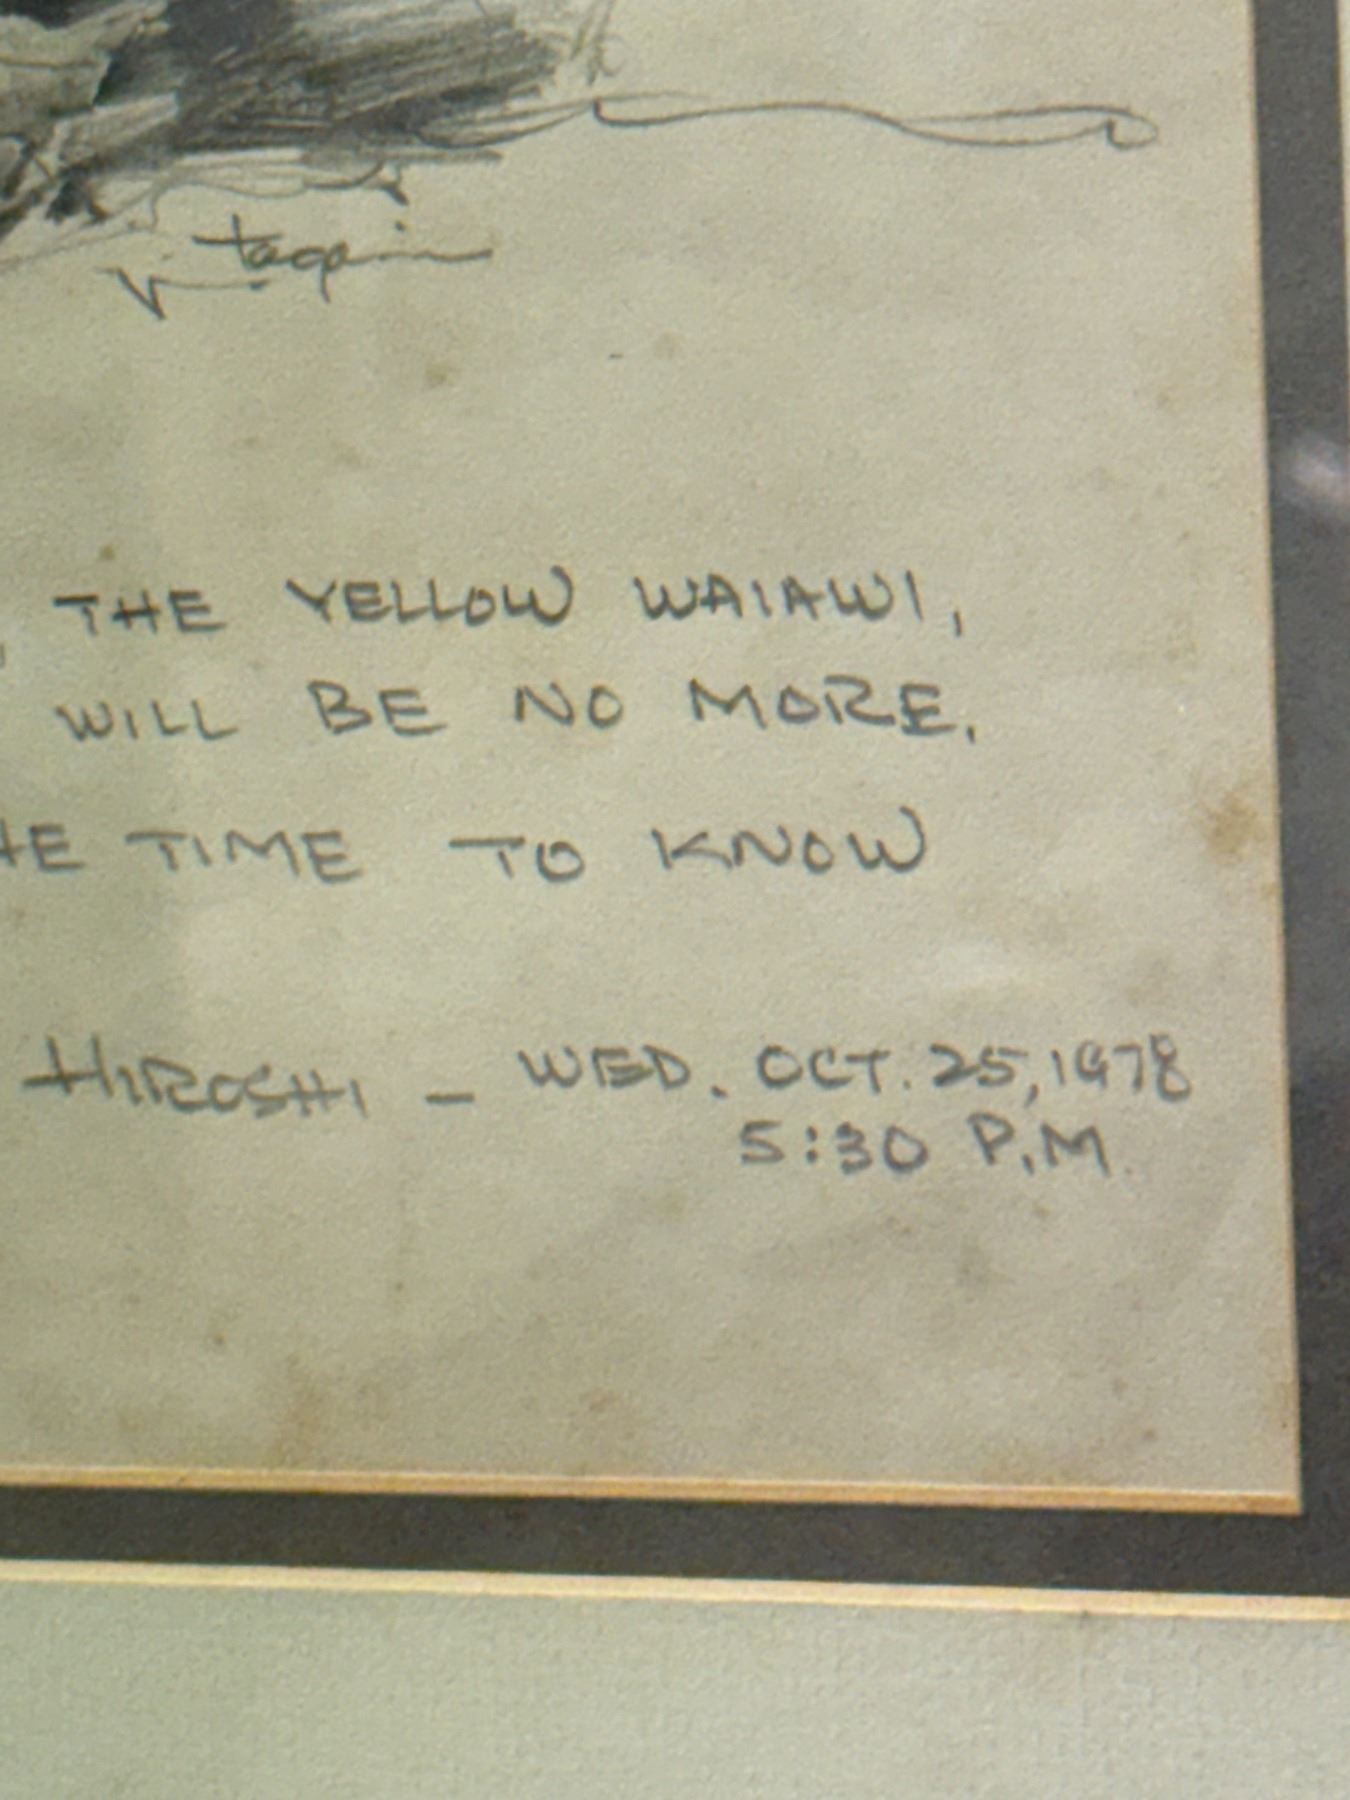 , THE YELLOW WAIAWI,
WILL BE NO MORE.
HE TIME TO KNOW
HIROSHI – WED. OCT. 25, 1978
5:30 P.M.